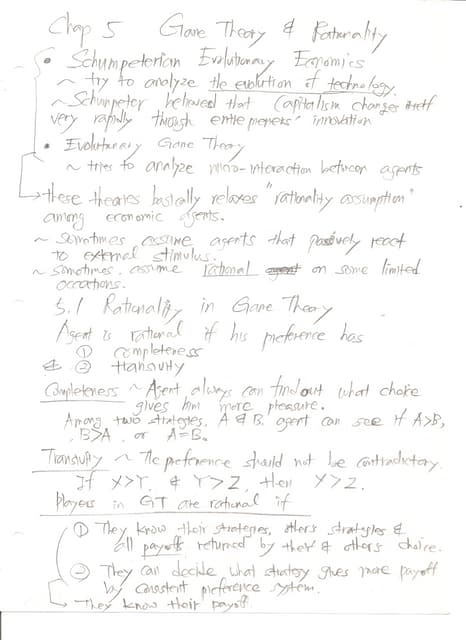 Chap 5 Game Theory & Rationality
• Schumpeterian Evolutionary Economics
~ try to analyze the evolution of technology.
~ Schumpeter believed that Capitalism changes itself
very rapidly through entrepreners' innovation
• Evolutionary Game Theory
~ tries to analyze micro-interaction between agents
→ these theories basically relaxes "rationality assumption"
among economic agents.
~ Sometimes assume agents that passively react
to external stimulus.
~ Sometimes, assume rational on some limited
occations.
5.1 Rationality in Game Theory
Agent is rational if his preference has
① completeness
& ② transivity
Completeness ~ Agent always can find out what choice
gives him more pleasure.
Among two strategies, A & B. agent can see if A>B,
B>A or A=B.
Transivity ~ The preference should not be contradictory.
If X>Y, & Y>Z, then Y>Z.
Players in GT are rational if
① They know their strategies, other's strategies &
all payoffs returned by their & others choice.
② They can decide what strategy gives more payoff
by consistent preference system.
→ They know their payoff.